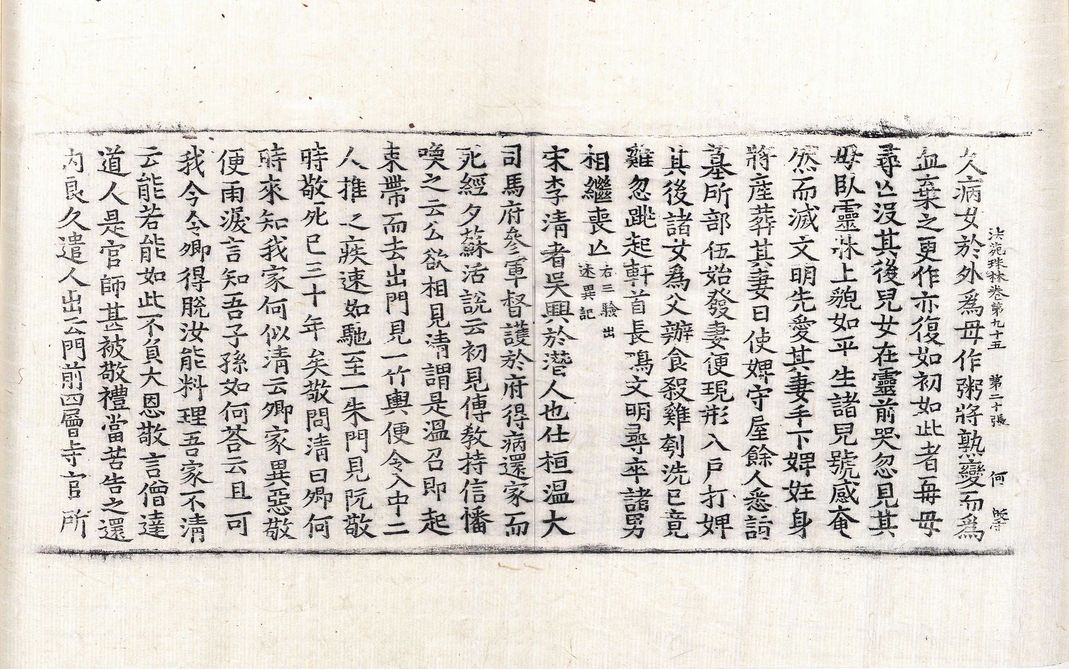 法苑珠林卷第九十五　第二十張　何
久病女於外為母作粥將熟變而為
血棄之更作亦復如初如此者再母
尋亡沒其後兒女在靈前哭忽見其
母臥靈牀上貌如平生諸兒號感奄
然而滅文明先愛其妻手下婢妊身
將產葬其妻日使婢守屋餘人悉詣
墓所部伍始發妻便現形入戶打婢
其後諸女為父辦食殺雞刳洗已竟
雞忽跳起軒首長鳴文明尋卒諸男
相繼喪亡右三驗出
述異記
宋李清者吳興於潛人也仕桓溫大
司馬府參軍督護於府得病還家而
死經夕蘇活說云初見傳教持信幡
喚之云公欲相見清謂是溫召即起
束帶而去出門見一竹輿便令入中二
人推之疾速如馳至一朱門見阮敬
時敬死已三十年矣敬問清曰卿何
時來知我家何似清云卿家異惡敬
便雨淚言知吾子孫如何荅云且可
我今令卿得脫汝能料理吾家不清
云能若能如此不負大恩敬言僧達
道人是官師甚被敬禮當苦告之還
內良久遣人出云門前四層寺官所